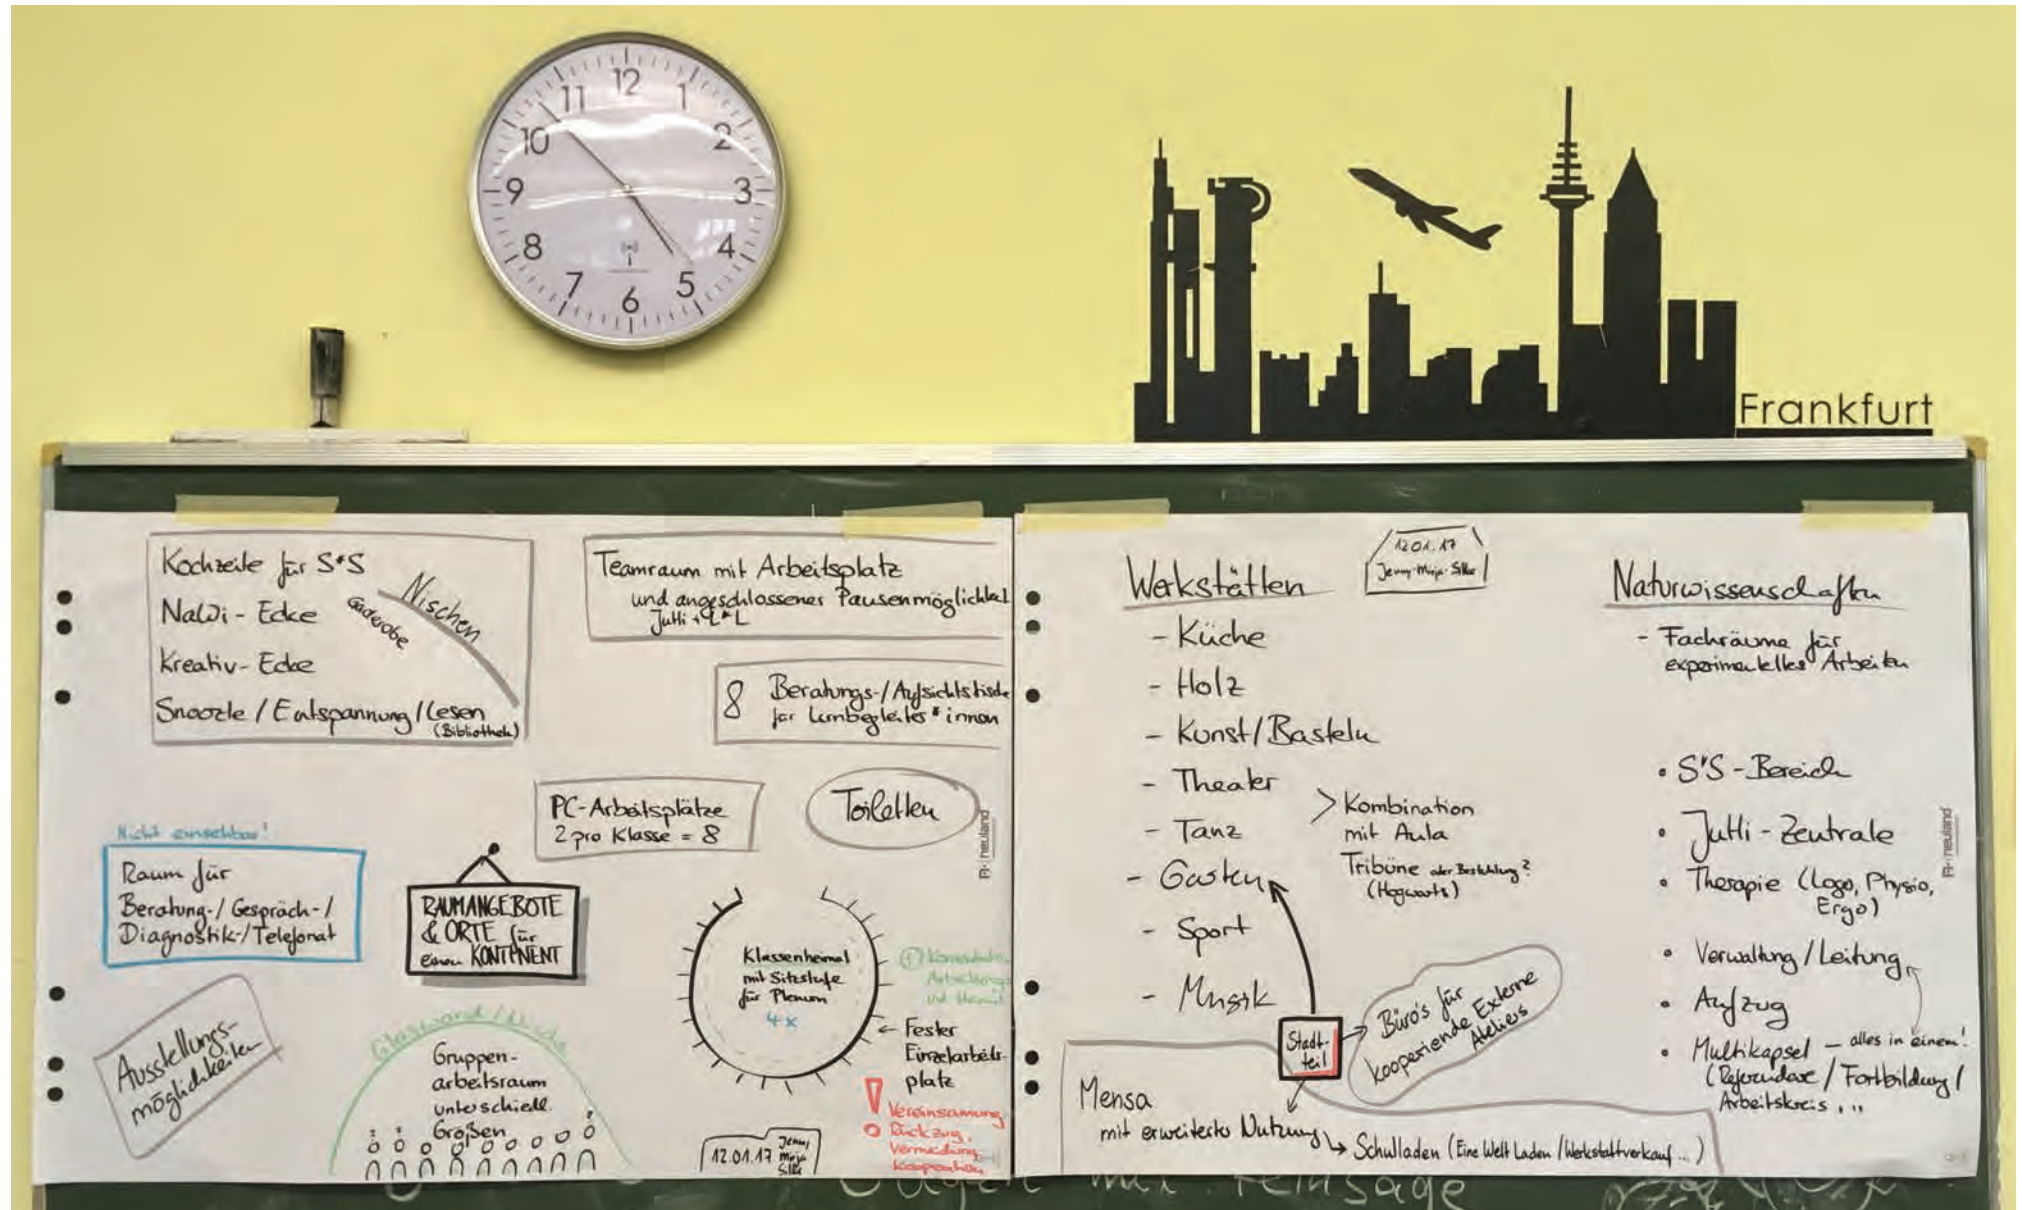 12
1
2
3
4
5
6
7
8
9
10
11
Frankfurt
Kochzeile für S*S
NaWi-Ecke
Kreativ-Ecke
Snoozle / Entspannung / Lesen
(Bibliothek)
Nischen
Gaderobe
Teamraum mit Arbeitsplatz
und angeschlossener Pausenmöglichkeit
Jutti + L*L
8 Beratungs-/Aufsichtstische
für Lernbegleiter*innen
PC-Arbeitsplätze
2 pro Klasse = 8
Toiletten
Nicht einsehbar!
Raum für
Beratung-/Gespräch-/
Diagnostik-/Telefonat
RAUMANGEBOTE
& ORTE für
einen KONTINENT
Klassenheimat
mit Sitzstufe
für Plenum
4x
Fester
Einzelarbeits-
platz
Vereinsamung
Rückzug,
Vermeidung
Kooperation
Ausstellungs-
möglichkeiten
Glaswand / Nische
Gruppen-
arbeitsraum
unterschiedl.
Größen
12.01.17
Jenny
Mirja
Silke
neuland
Werkstätten
- Küche
- Holz
- Kunst/Basteln
- Theater
- Tanz
- Garten
- Sport
- Musik
Kombination
mit Aula
Tribüne oder Bestuhlung?
(Hogwarts)
12.01.17
Jenny-Mirja-Silke
Stadt-
teil
Büro's für
kooperiende Externe
Ateliers
Mensa
mit erweiterter Nutzung
Schulladen (Eine Welt Laden / Werkstattverkauf...)
Naturwissenschaften
- Fachräume für
experimentelles Arbeiten
• S*S-Bereich
• Jutti-Zentrale
• Therapie (Logo, Physio,
Ergo)
• Verwaltung/Leitung
• Aufzug
• Multikapsel - alles in einem!
(Referendare / Fortbildung /
Arbeitskreis, ..
neuland